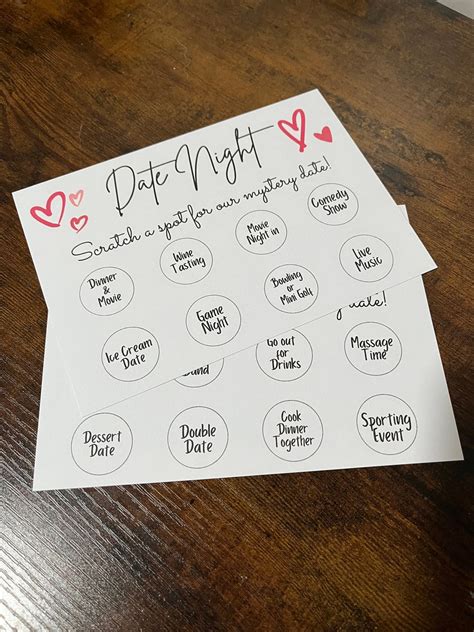 Date Night
Scratch a spot for our mystery date!
Dinner
&
Movie
Wine
Tasting
Movie
Night in
Comedy
Show
Ice Cream
Date
Game
Night
Bowling
or
Mini Golf
Live
Music
date!
Go out
for
Drinks
Massage
Time
Dessert
Date
Double
Date
Cook
Dinner
Together
Sporting
Event